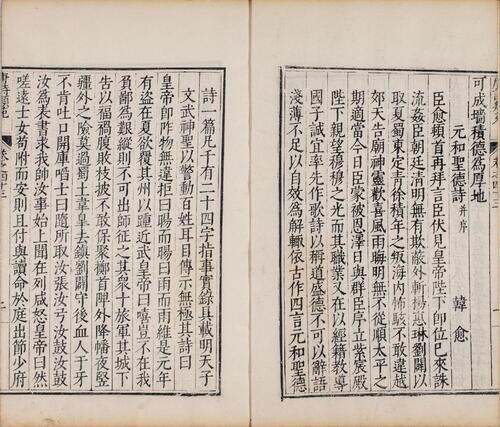 可成積德爲厚地
元和聖德詩 并序 韓愈
臣愈頓首再拜言臣伏見皇帝陛下即位已來誅
流姦臣朝廷清明無有欺蔽外斬楊惠琳劉闢以
取夏蜀東定青徐積年之叛海內怖駭不敢違越
郊天告廟神靈歡喜風雨晦明無不從順太平之
期適當今日臣蒙被恩澤日與群臣序立紫宸殿
陛下親望穆穆之光而其職業又在以經籍教導
國子誠宜率先作歌詩以稱道盛德不可以辭語
淺薄不足以自效為解輒依古作四言元和聖德
詩一篇凡千有二十四字指事實錄具載明天子
文武神聖以警動百姓耳目傳示無極其詩曰
皇帝即阼物無違拒曰暘而暘曰雨而雨維是元年
有盗在夏欲覆其州以踵近武皇帝曰嘻豈不在我
負鄙為艱縱則不可出師征之其衆十旅軍其城下
告以福禍腹敗枝披不敢保聚擲首陴外降幡夜竪
疆外之險莫過蜀土韋皐去鎮劉闢守後血人于牙
不肯吐口開庫啗士曰隨所取汝張汝弓汝鼓汝鼓
汝為表書求我帥汝事始上聞在列咸怒皇帝曰然
嗟遠士女苟附而安則且付與讀命於庭出節少府